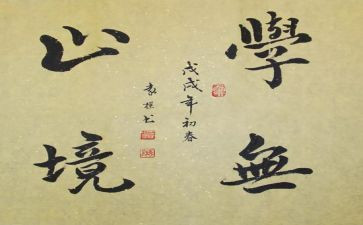 學無
止境
戊戌年初春
袁 书